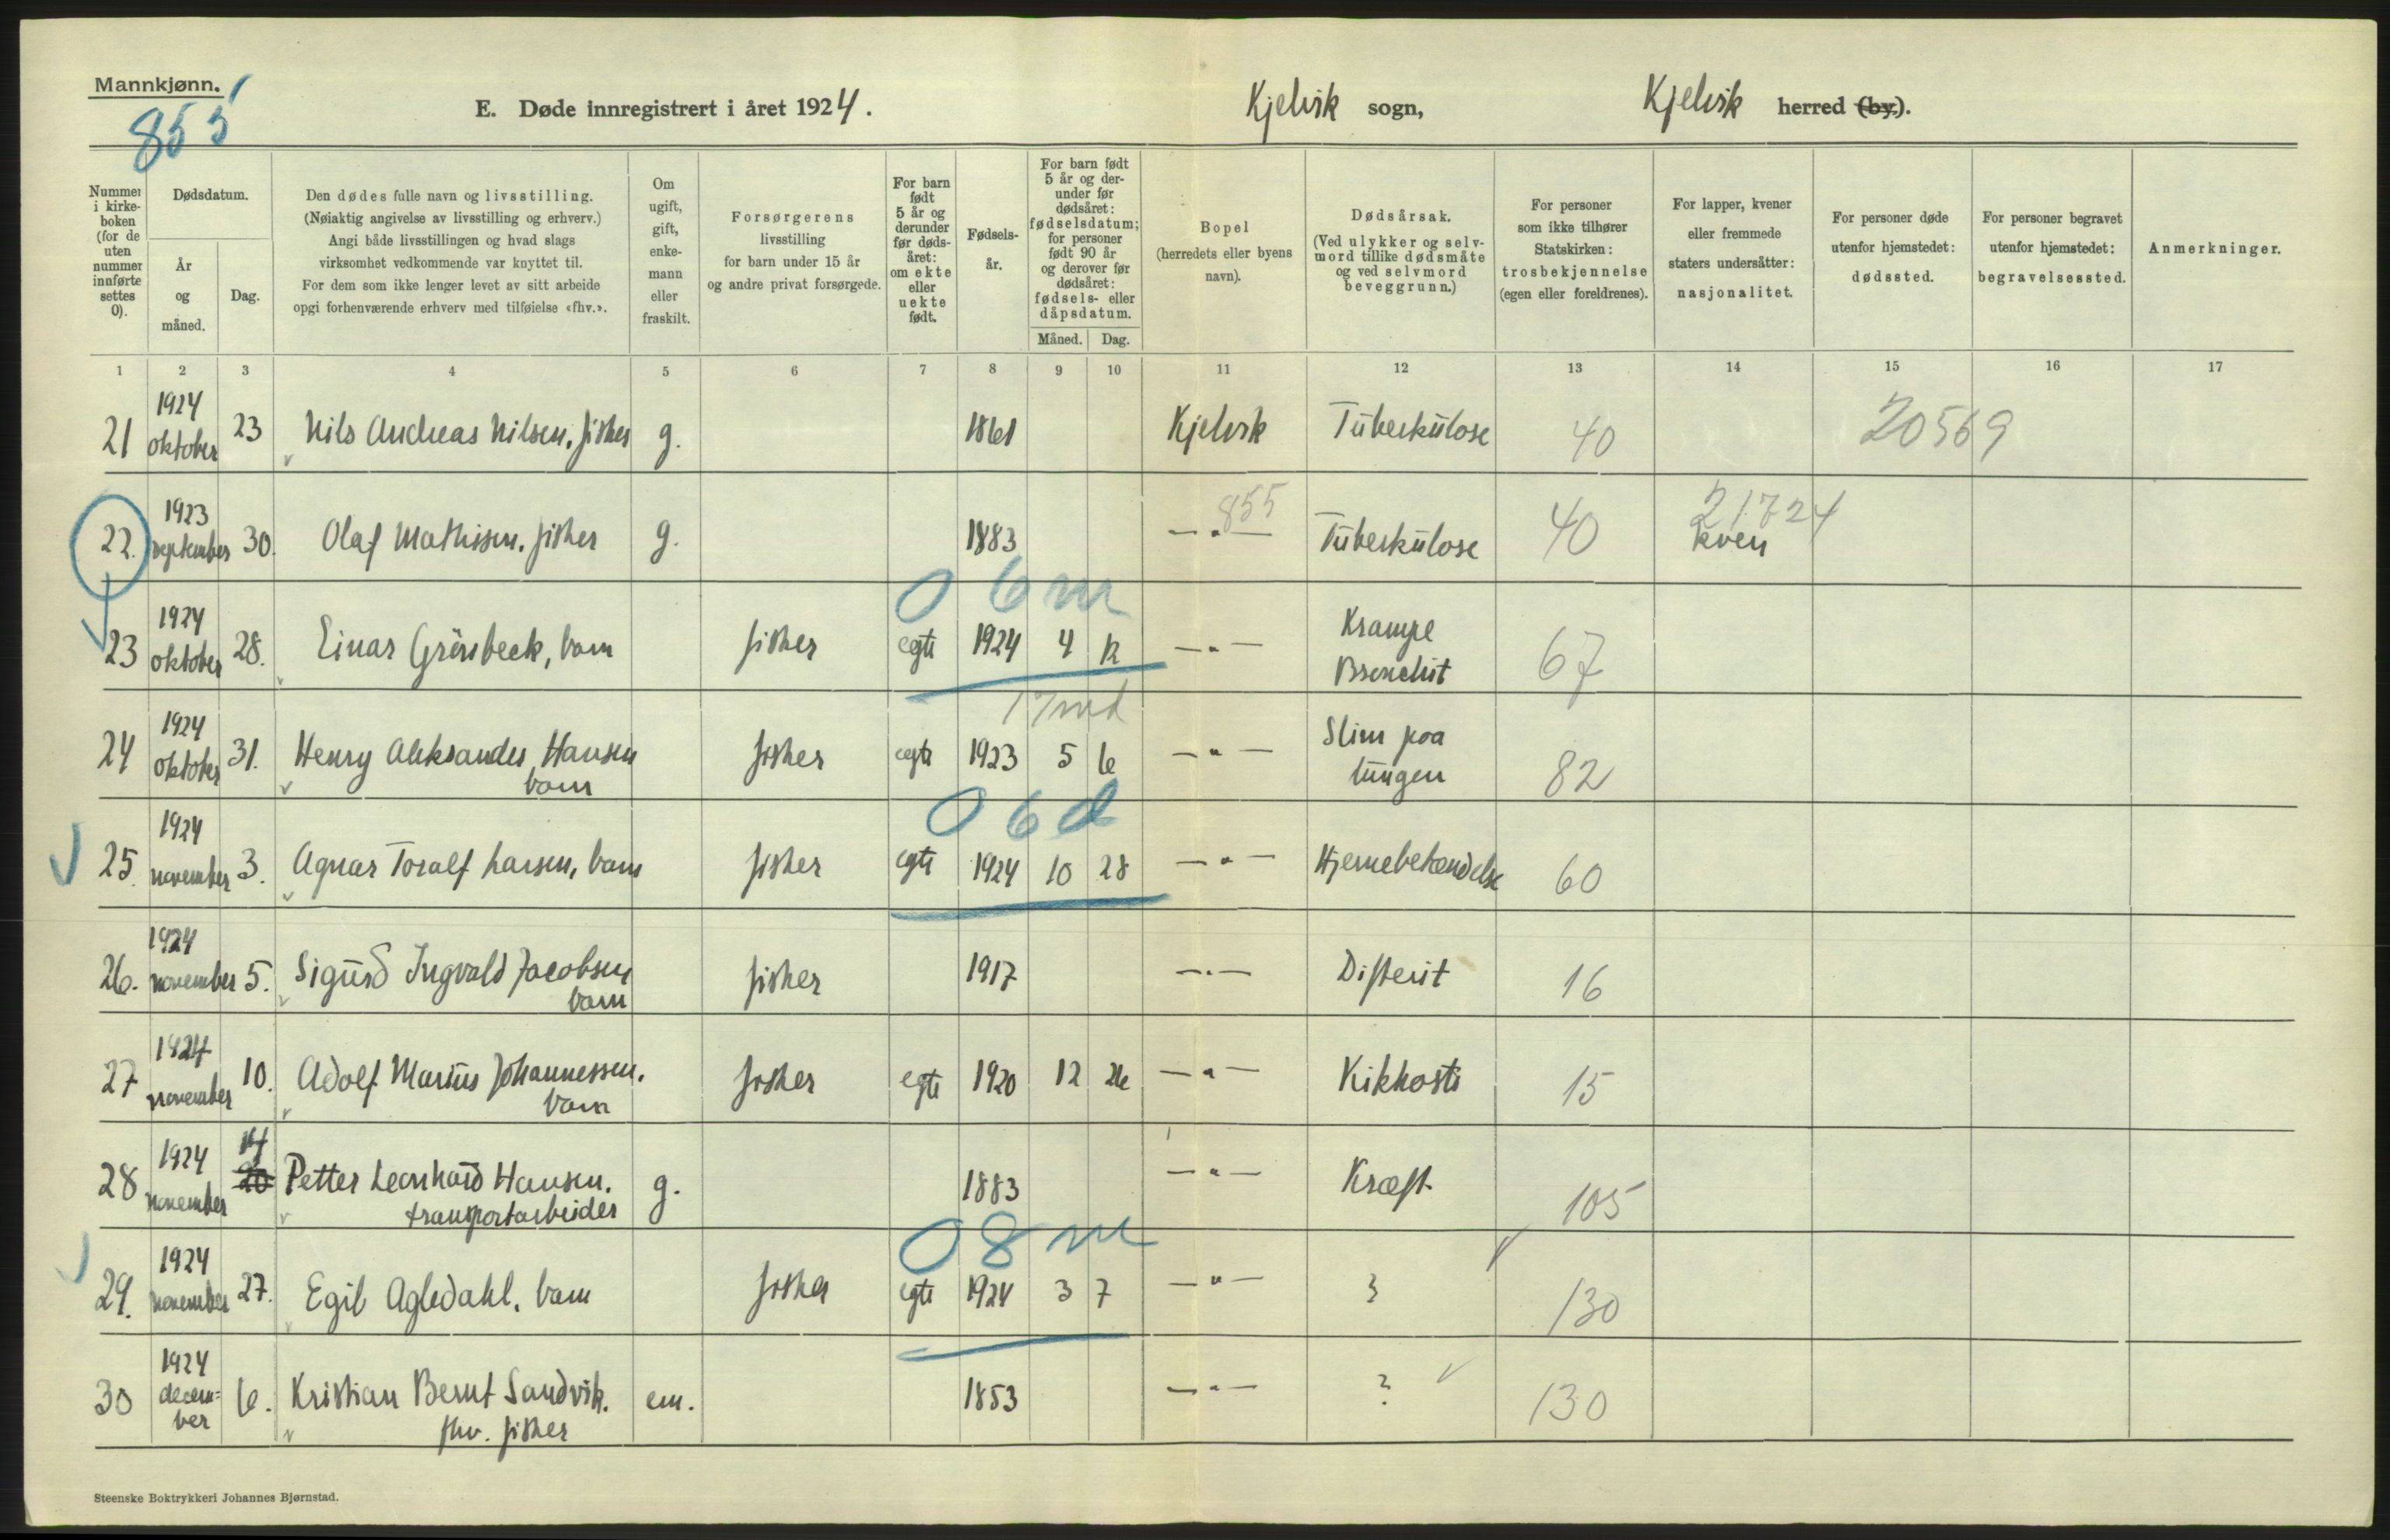 Mannkjønn.
855
E. Døde innregistrert i året 1924.
Kjelvik sogn,
Kjelvik herred (by).
Nummer i kirke-boken (for de uten nummer innførte settes 0).
Dødsdatum.
År og måned.
Dag.
Den dødes fulle navn og livsstilling.
(Nøiaktig angivelse av livsstilling og erhverv.)
Angi både livsstillingen og hvad slags
virksomhet vedkommende var knyttet til.
For dem som ikke lenger levet av sitt arbeide
opgi forhenværende erhverv med tilføielse «fhv.».
Om ugift, gift, enke-mann eller fraskilt.
Forsørgerens
livsstilling
for barn under 15 år
og andre privat forsørgede.
For barn født 5 år og derunder før døds-året: om ekte eller uekte født.
Fødsels-år.
For barn født 5 år og der-under før dødsåret: fødselsdatum; for personer født 90 år og derover før dødsåret: fødsels- eller dåpsdatum.
Måned. Dag.
Bopel
(herredets eller byens navn).
Dødsårsak.
(Ved ulykker og selv-mord tillike dødsmåte og ved selvmord beveggrunn.)
For personer
som ikke tilhører
Statskirken:
trosbekjennelse
(egen eller foreldrenes).
For lapper, kvener
eller fremmede
staters undersåtter:
nasjonalitet.
For personer døde
utenfor hjemstedet:
dødssted.
For personer begravet
utenfor hjemstedet:
begravelsessted.
Anmerkninger.
1 2 3 4 5 6 7 8 9 10 11 12 13 14 15 16 17
21 1924 oktober 23 Nils Andreas Nilsen, fisker g. 1861 Kjelvik Tüberkülose 40 20569
22. 1923 september 30. Olaf Mathisen. fisker g. 1883 —"— 855 Tüberkülose 40 21724 kven
0 6 m
23 1924 oktober 28. Einar Grönbeck, barn fisker egte 1924 4 12 —"— Krampe Bronchit 67
17 md
24 1924 oktober 31. Henry Aleksander Hansen barn fisker egte 1923 5 6 —"— Slim paa lüngen 82
0 6 d
25. 1924 november 3. Agnar Toralf Larsen, barn fisker egte 1924 10 28 —"— Hjernebetændelse 60
26. 1924 november 5. Sigürd Ingvald Jacobsen barn fisker 1917 —"— Difterit 16
27 1924 november 10. Adolf Mariüs Johannessen. barn fisker egte 1920 12 26 —"— Kikhoste 15
28 1924 november 20 14 Petter Leonhard Hansen. transportarbeider g. 1883 —"— Kræft. 105
0 8 m
29. 1924 november 27. Egil Agledahl, barn fisker egte 1924 3 7 —"— ? 130
30 1924 decem=ber 6. Kristian Bernt Sandvik. fhv. fisker em. 1853 —"— ? 130
Steenske Boktrykkeri Johannes Bjørnstad.